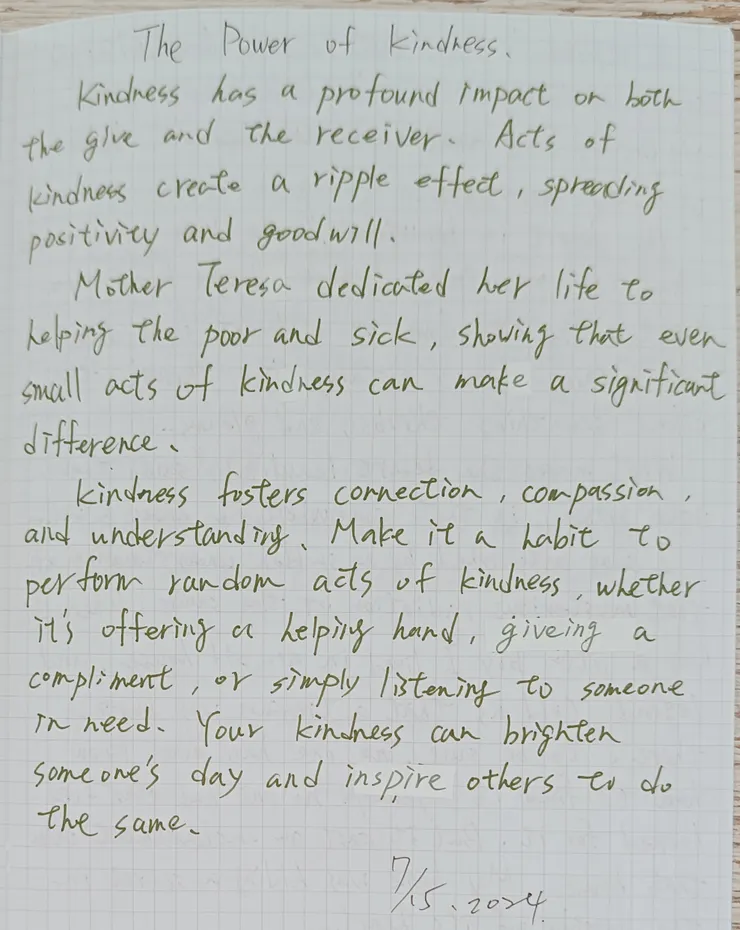 The Power of kindness.
Kindness has a profound impact on both
the give and the receiver. Acts of
kindness create a ripple effect, spreading
positivity and goodwill.
Mother Teresa dedicated her life to
helping the poor and sick, showing that even
small acts of kindness can make a significant
difference.
kindness fosters connection, compassion,
and understanding. Make it a habit to
perform random acts of kindness, whether
it's offering a helping hand, giveing a
compliment, or simply listening to someone
in need. Your kindness can brighten
someone's day and inspire others to do
the same.
7/15.2024